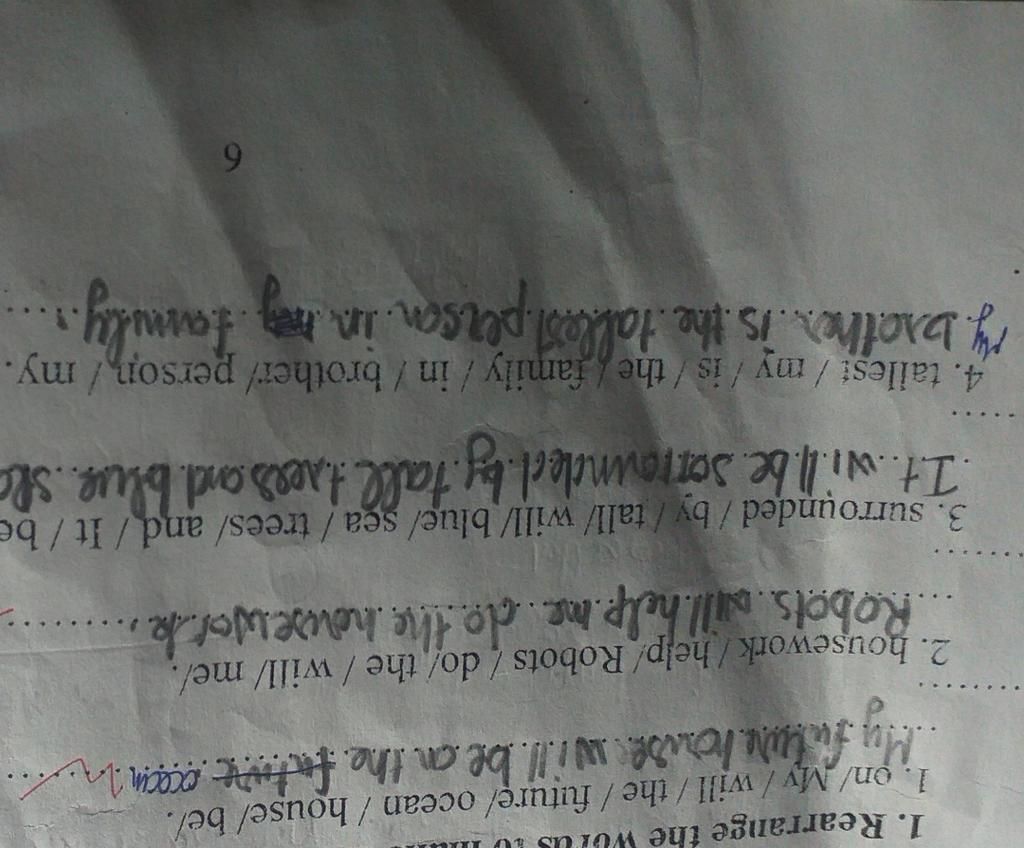 1. Rearrange the words to
1. on/ My / will / the / future/ ocean / house/ be/.
My future house will be on the future ocean
2. housework / help/ Robots / do/ the / will / me/.
Robots will help me do the housework.
3. surrounded / by / tall/ will/ blue/ sea / trees/ and / It / be
It will be sorrounded by tall trees and blue
4. tallest / my / is / the / family / in / brother/ person / my.
My brother is the tallest person in my family.
6